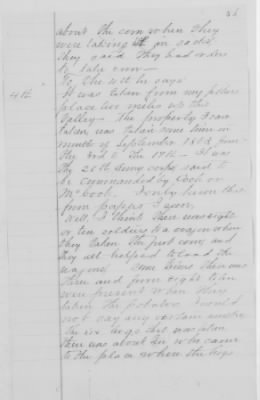 about the corn when they
were taking it on
they said they had orders
to take corn
To the 4th he says
4th.
It was taken from my
place miles up this
Valley — the property I saw
taken, was taken some time in
month of September 1863 from
the 3rd to the 17th — It was
The 20th Army corps, said to
be commanded by Cook or
McCook. I only know this
from I seen.
Well I think there was eight
or ten soldiers & a wagon when
they taken the first corn, and
they all helped to load the
wagons. time there was
three and from eight to ten
were present when they
taken the potatoes I would
not say any certain number
The six hogs that was
there was about ten who came
to the place where the hogs